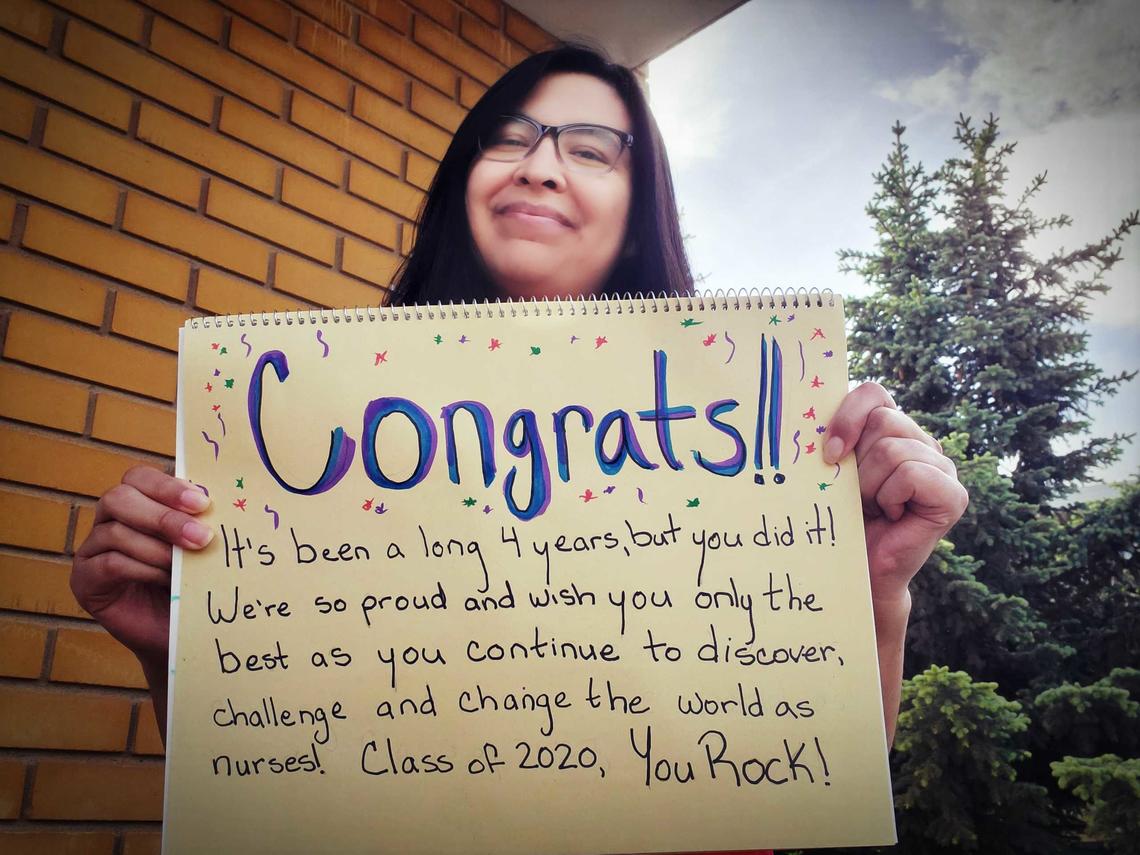 Congrats!!
It's been a long 4 years, but you did it!
We're so proud and wish you only the
best as you continue to discover,
challenge and change the world as
nurses! Class of 2020, You Rock!